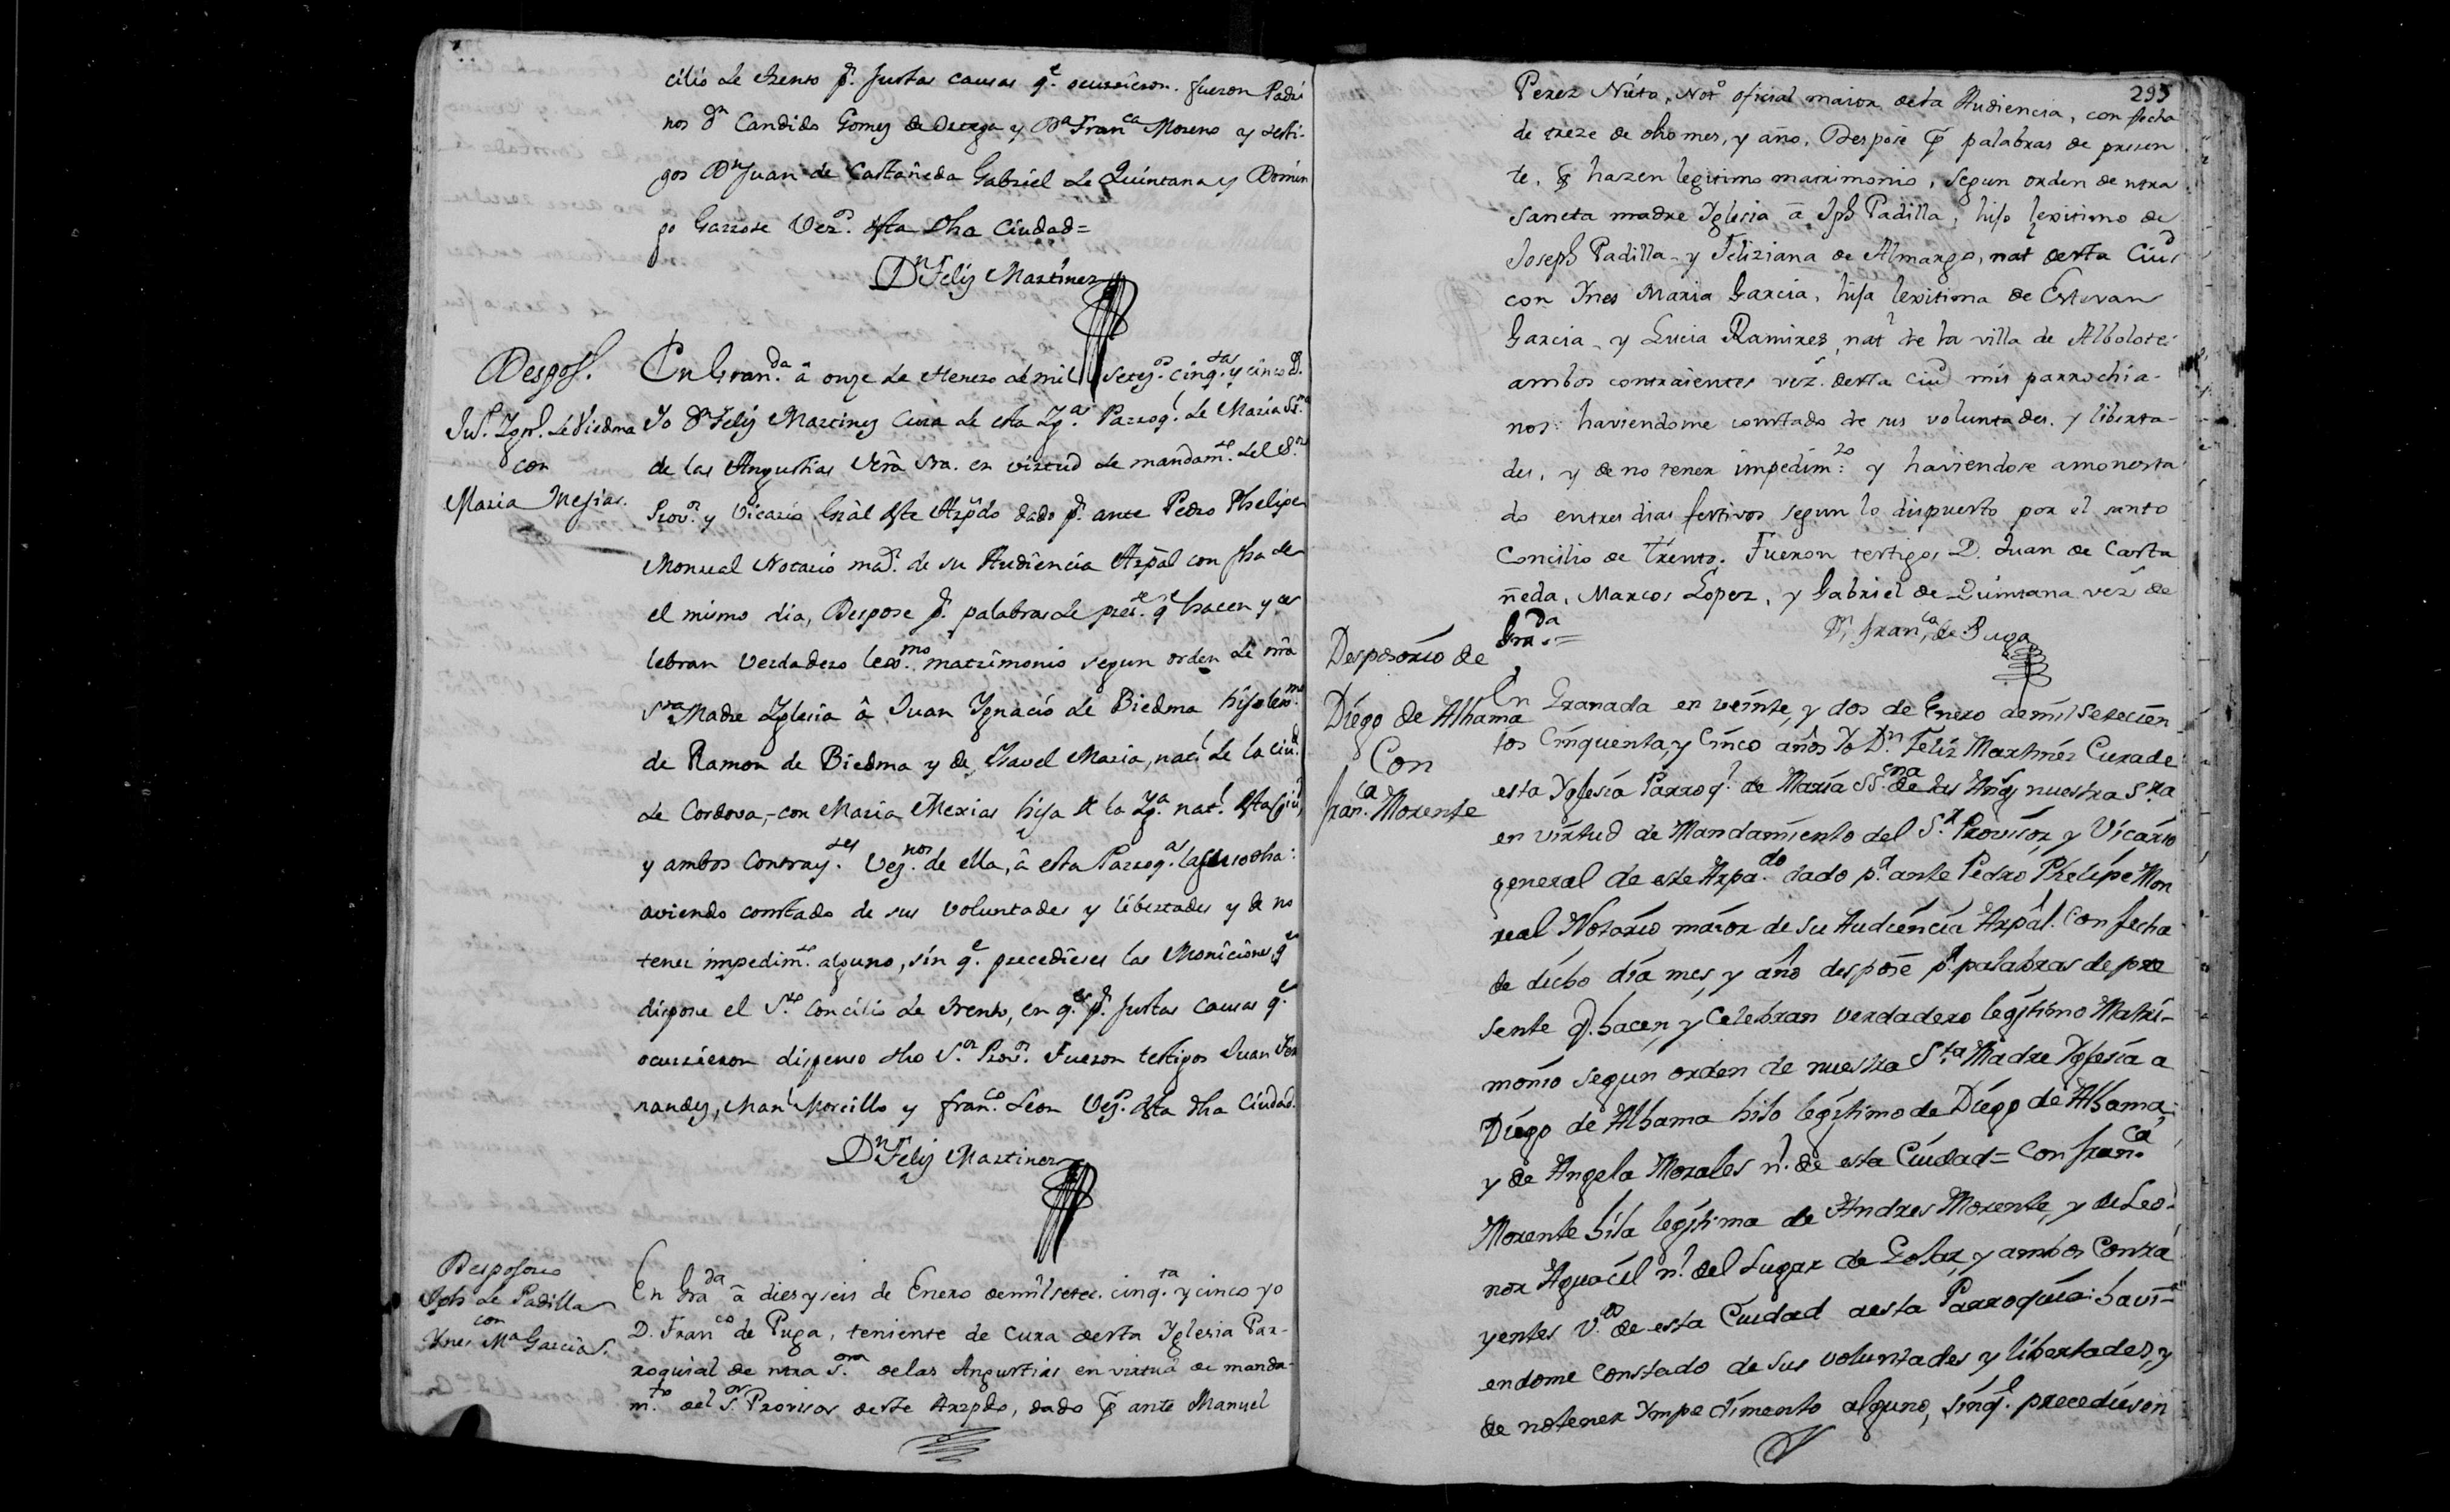 cilio de trento pr. justas causas qe. ocurrieron. fueron Padri
nos Dn Candido Gomez de Ortega y Da Franca Moreno y testi-
gos Dn Juan de Castañeda Gabriel de Quintana y Domin
go Garrote Vezs. desta dha Ciudad=
Dn Feliz Martinez
Despos.
Jun. Ygno. de Viedma
con
Maria Mesias.
En Granda. â onze de Henero de mil setezs. cinqtas. y cinco a.
Yo Dn Feliz Martinez Cura de esta Yga. Parroql. de Maria SSma
de las Angustias Nrâ Sra. en virtud de mandamto. del Sor
Provor. y Vicario Grâl deste Arzpdo dado pr. ante Pedro Phelipe
Monreal Notario mar. de su Audiencia Arzpâl con fha de
el mismo dia, Despose pr. palabras de preste. qe hacen y ce
lebran verdadero lexmo. matrimonio segun orden de nrâ
Sta Madre Yglesia â Juan Ygnacio de Biedma hijo lexmo.
de Ramon de Biedma y de Ysavel Maria, natl. de la ciud.
de Cordova,-con Maria Mexias hija de la Yga. natl. desta Ciud,
y ambos Contraytes. Veznos. de ella, â esta Parroqa.
aviendo constado de sus voluntades y libertades y de no
tener impedimto. alguno, sin qe. precediesen las Moniciones qe
dispone el Sto. Concilio de trento, en qes. pr. justas causas qe.
ocurrieron dispenso dho Sor. Provor. Fueron testigos Juan Fer
nandez, Manl Morcillo y Franco. Leon Vezs. desta dha Ciudad.
Dn Feliz Martinez
Desposorio
Jph de Padilla
con
Ynes Ma Garcia S.
En Grada â dies y seis de Enero de mil setec. cinqta. y cinco yo
D. Franco de Puga, teniente de Cura desta Yglesia Par-
roquial de ntra Sora. de las Angustias en virtud de manda-
mto. del Sor. Provisor deste Arzpdo, dado pr ante Manuel
295
Perez Nieto, Noto oficial maior desta Audiencia, con fecha
de treze de dho mes, y año, Despose pr palabras de presen
te, q hazen legitimo matrimonio, segun orden de ntra
sancta madre Yglesia â Jph Padilla, hijo lexitimo de
Joseph Padilla y Feliziana de Almargo, nat desta Ciud
con Ynes Maria Garcia, hija lexitima de Estevan
Garcia y Lucia Ramires, natl de la villa de Albolote:
ambos contraientes vezs. desta ciud mis parrochia-
nos: haviendome constado de sus voluntades. y liberta-
des, y de no tener impedimto: y haviendose amonesta
do en tres dias festivos segun lo dispuesto por el santo
Concilio de trento. Fueron testigos D. Juan de Casta
ñeda, Marcos Lopez, y Gabriel de Quintana vezs de
Grada.=
Dn Franco de Puga
Desposorio de
Diego de Alhama
Con
Franca. Morente
En Granada en veinte, y dos de Enero de mil setecien
tos Cinquenta, y Cinco años Yo Dn. Feliz Martinez Cura de
esta Yglesia Parroql. de Maria SSma de las Angs nuestra Sra
en virtud de Mandamiento del Sr. Provisor, y Vicario
general de este Arzpado. dado pr. ante Pedro Phelipe Mon
real Notario maior de su Audiencia Arzpâl. Con fecha
de dicho dia mes, y año despose pr palabras de pre
sente q. hacen, y Celebran verdadero legitimo Matri-
monio segun orden de nuestra Sta Madre Yglesia a
Diego de Alhama hijo legitimo de Diego de Alhama,
y de Angela Morales nl. de esta Ciudad= Con Franca.
Morente hija legitima de Andres Morente, y de Leo-
nor Aguacil nl. del Lugar de Gojar, y ambos Contra
yentes Vos. de esta Ciudad a esta Parroquia: havi-
endome Constado de sus voluntades y libertades, y
de no tener Ympedimento alguno, sin qe. precediesen